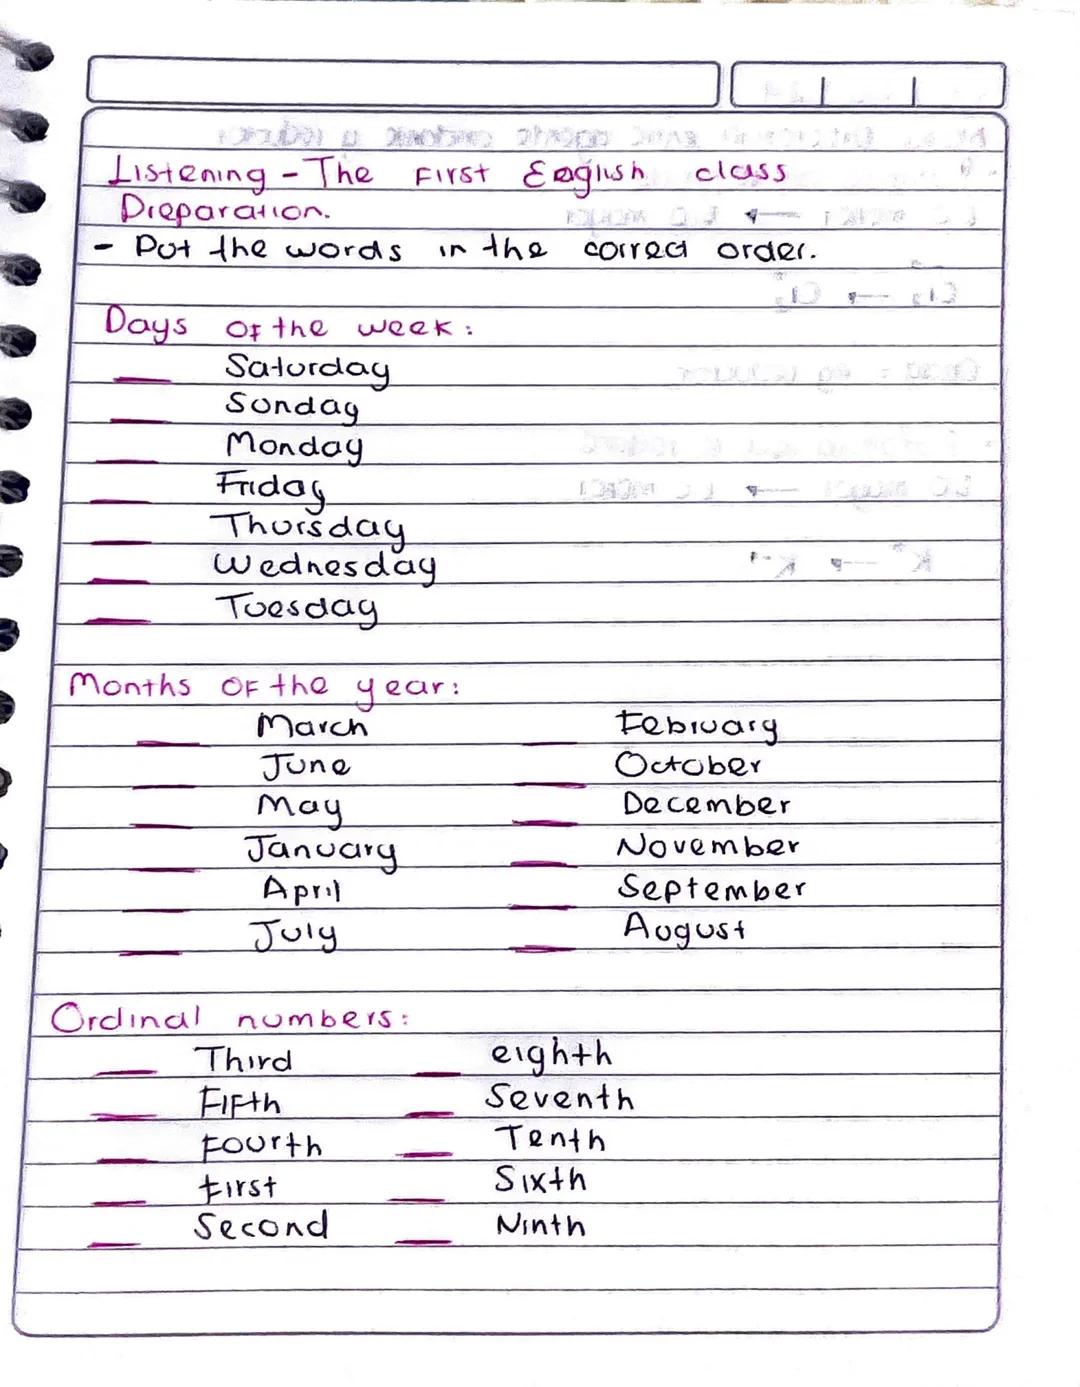 Listening - The First English class
Preparation.
- Put the words in the correct order.
Days of the week:
___ Saturday
___ Sunday
___ Monday
___ Friday
___ Thursday
___ Wednesday
___ Tuesday
Months of the year:
___ March ___ February
___ June ___ October
___ May ___ December
___ January ___ November
___ April ___ September
___ July ___ August
Ordinal numbers:
___ Third ___ eighth
___ Fifth ___ Seventh
___ Fourth ___ Tenth
___ First ___ Sixth
___ Second ___ Ninth